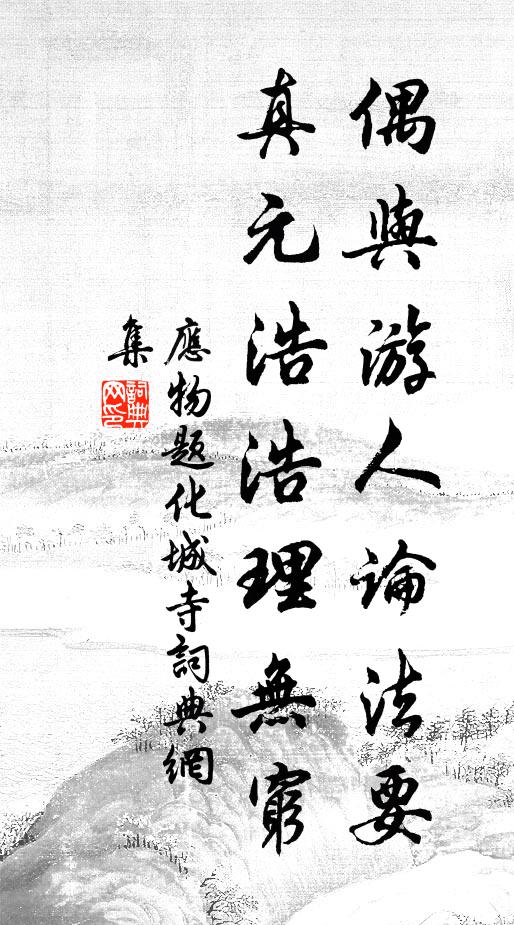 偶與游人論法要
真元浩浩理無窮
應物題化城寺詞典網
集
詞典
网印